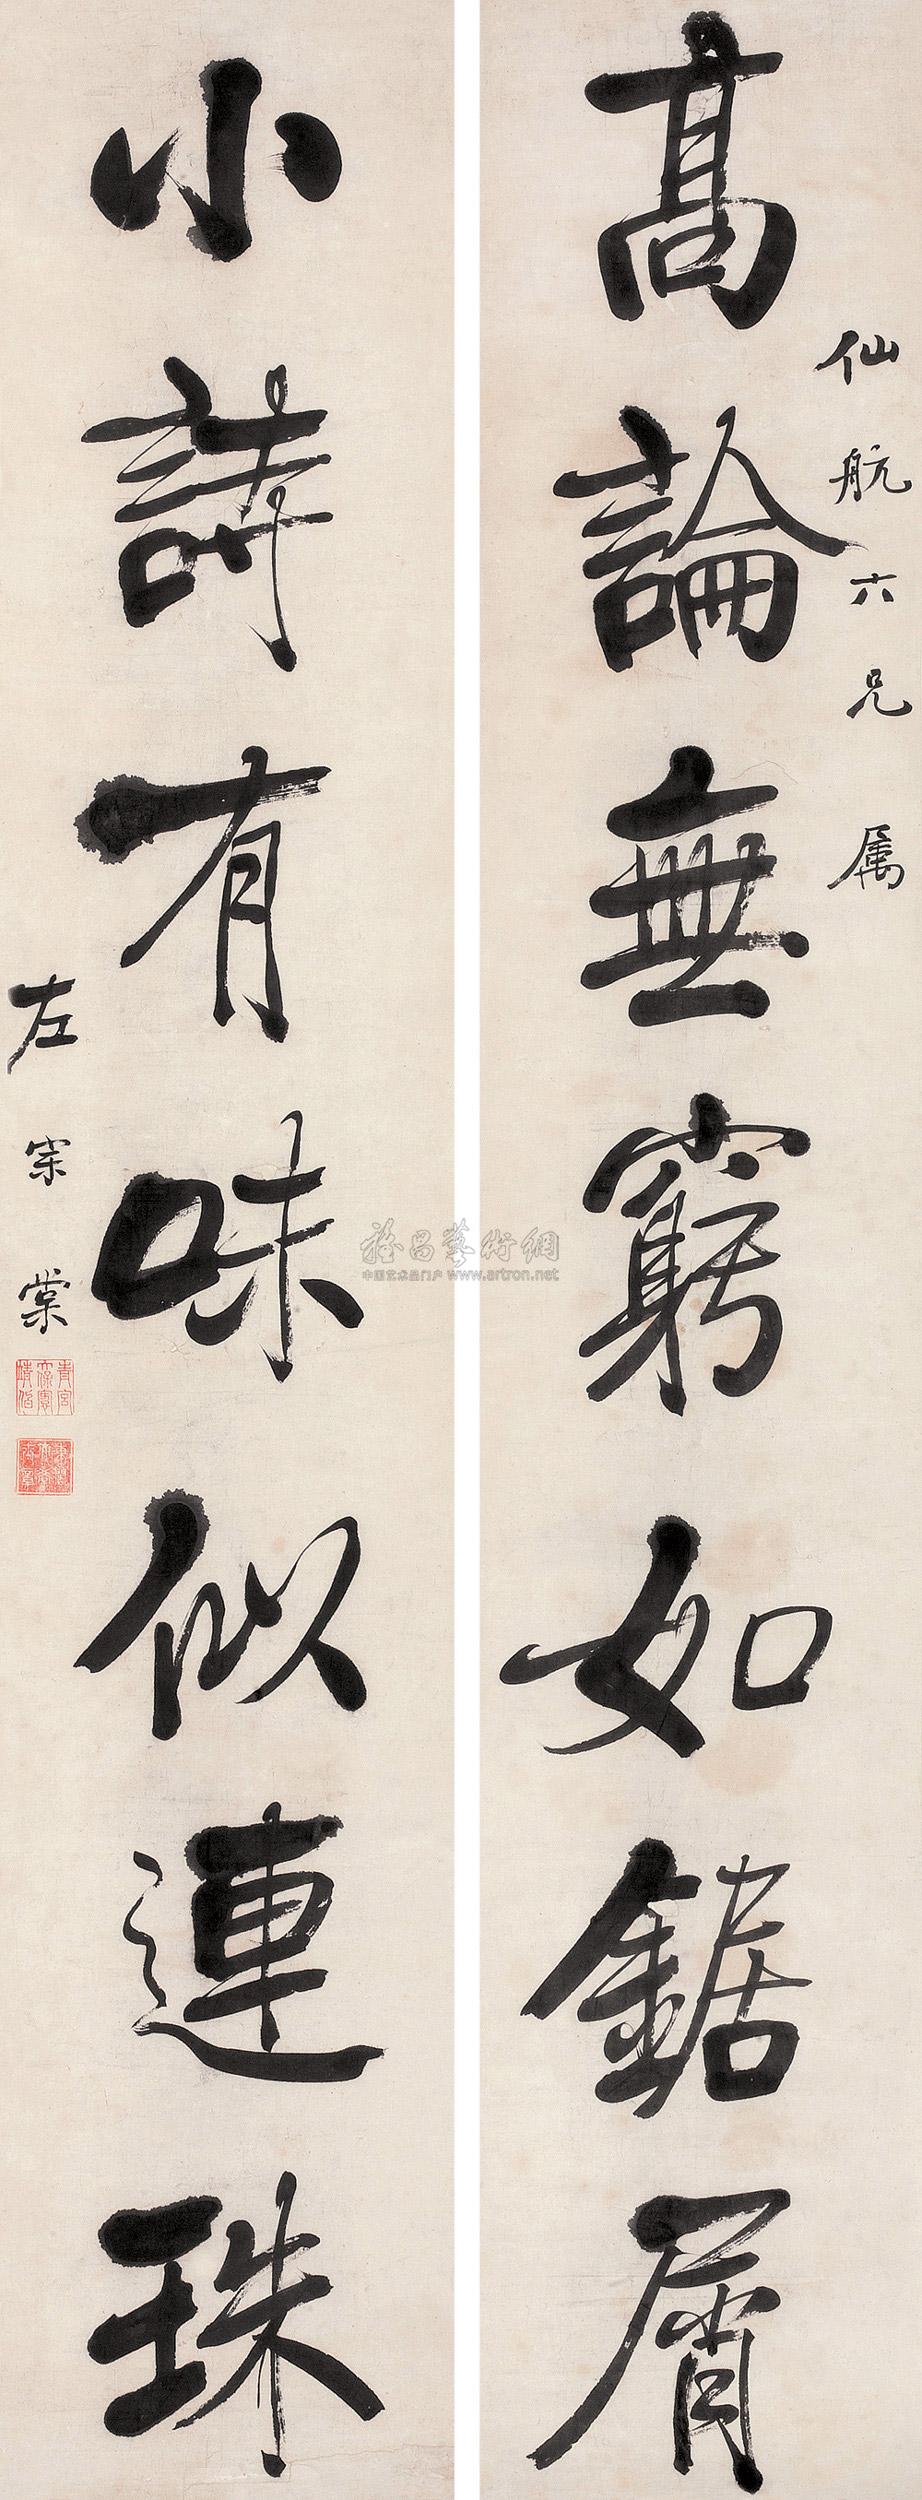 仙航六兄属
高論無窮如鋸屑
小詩有味似連珠
左宗棠
青宮太保恪靖侯
雅昌藝術網
中国艺术品门户 www.artron.net